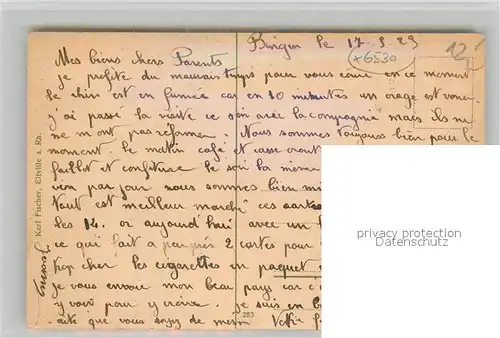 Bingen le 17 8 23
x6530
12
Mes biens chers Parents
Je profite du mauvais temps pour vous écrire en ce moment
le Rhin est en fumée car en 10 minutes un orage est venu
j'ai passé la visite ce soir avec la compagnie mais ils ne
ne m ont pas réformer. Nous sommes toujours bien pour le
moment. le matin café et casse crout
et confiture le soir la meme
par jour nous sommes bien
tout est meilleur marché ces cartes
les 12. or aujourd'hui avec un
ce qui fait a 2 cartes pour
trop cher les cigarettes en paquet
je vous envoie mon beau pays car c
y voir pour y croire. je suis en b
que vous soyez de meme Votre f
Karl Fischer, Eltville a. Rh.
253
privacy protection
Datenschutz